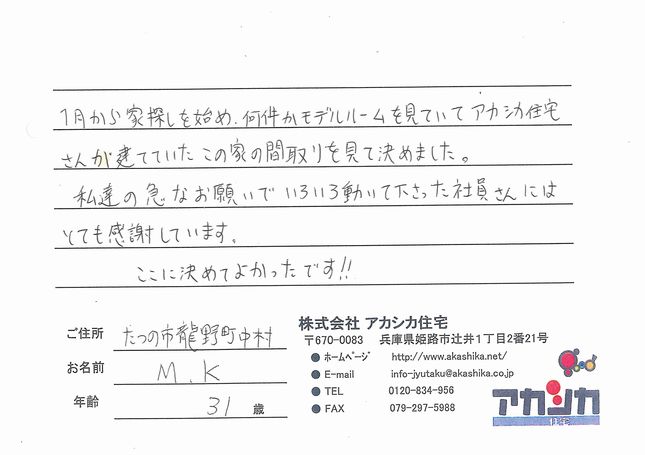 1月から家探しを始め、何件かモデルルームを見ていて アカシカ住宅
さんが建てていた この家の間取りを見て決めました。
私達の急なお願いで いろいろ動いて下さった社員さんには
とても感謝しています。
ここに決めてよかったです!!
ご住所 たつの市龍野町中村
お名前 M.K
年齢 31 歳
株式会社 アカシカ住宅
〒670-0083 兵庫県姫路市辻井1丁目2番21号
● ホームページ http://www.akashika.net/
● E-mail info-jyutaku@akashika.co.jp
● TEL 0120-834-956
● FAX 079-297-5988
アカシカ
住宅